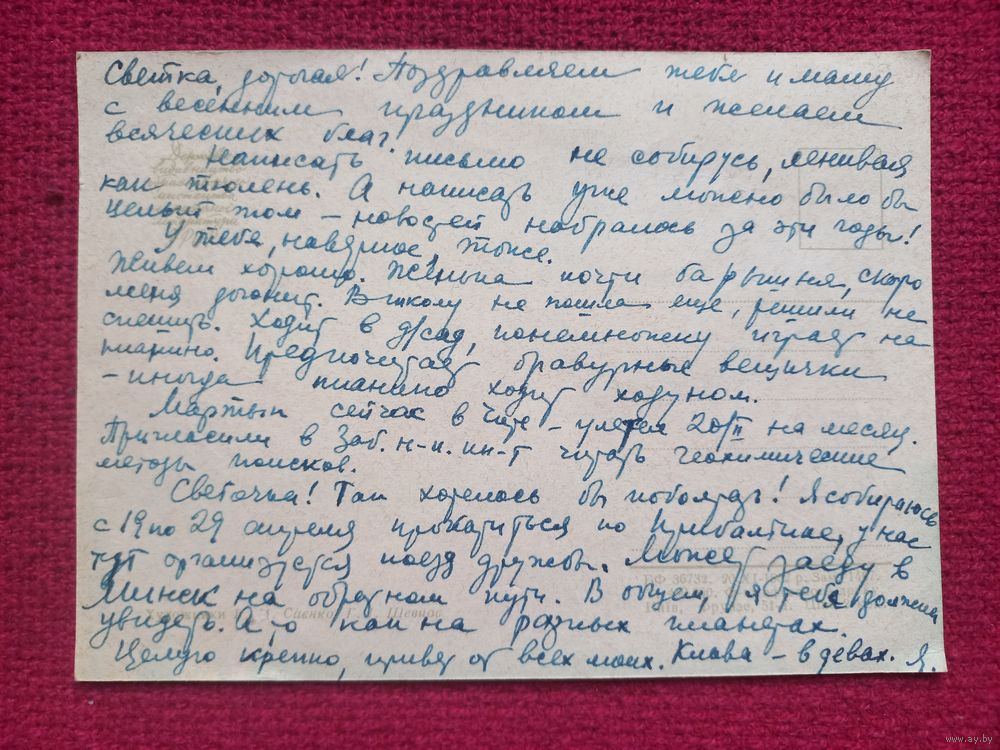 Светка, дорогая! Поздравляем тебя и маму
с весенним праздником и желаем
всяческих благ.
Написать письмо не собирусь, ленивая
как тюлень. А написать уже можно было бы
целый том – новостей набралось за эти годы!
У тебя, наверное, тоже.
Живем хорошо. Женька почти барышня, скоро
меня догонит. В школу не пошла еще, решили не
спешить. Ходит в д/сад, понемножку играет на
пианино. Предпочитает бравурные вещички
– иногда пианино ходит ходуном.
Мартын сейчас в Чите – улетел 20/II на месяц.
Пригласили в Заб. н-и. ин-т читать геохимические
методы поисков.
Светочка! Так хотелось бы поболтать! Я собираюсь
с 19 по 29 апреля прокатиться по Прибалтике, у нас
тут организуется поезд дружбы. Может заеду в
Минск на обратном пути. В общем, я тебя должна
увидеть. А то как на разных планетах.
Целую крепко, привет от всех моих. Клава – в девах. Я.
БФ 36732.
Художники З. Саєнко, Г. Шевцов
Київ,
www.ay.by